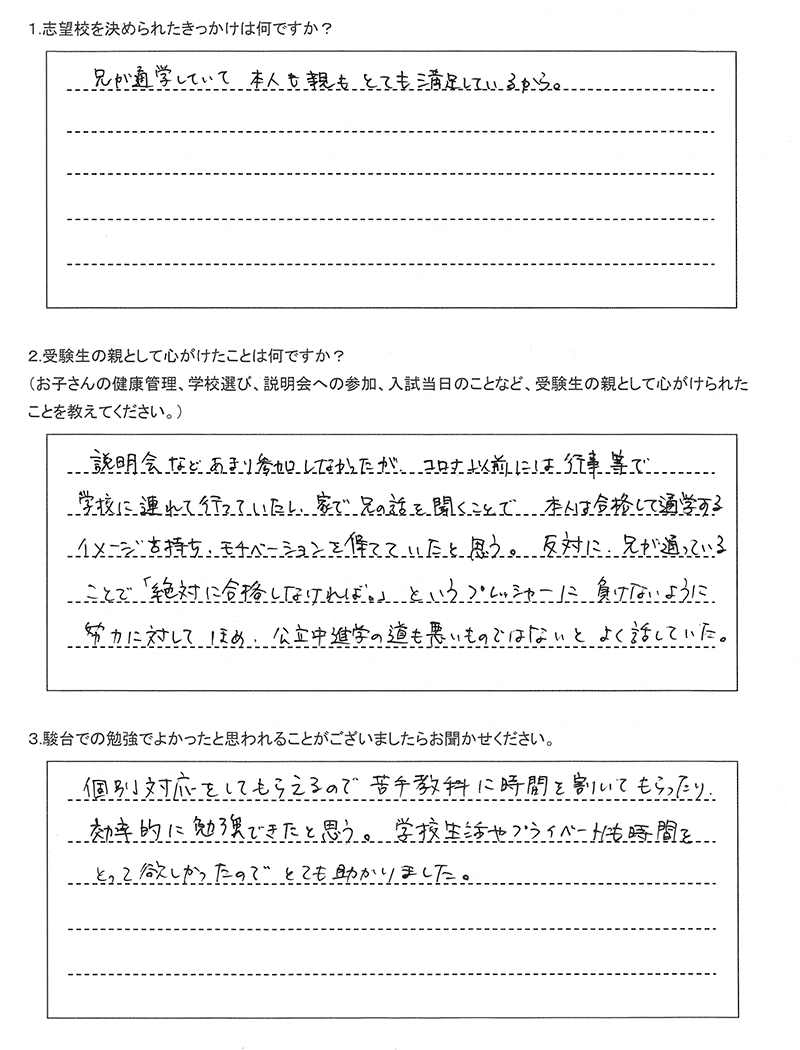 1.志望校を決められたきっかけは何ですか？
兄が通学していて 本人も親も とても満足しているから。
2.受験生の親として心がけたことは何ですか？
（お子さんの健康管理、学校選び、説明会への参加、入試当日のことなど、受験生の親として心がけられた
ことを教えてください。）
説明会などあまり参加しなかったが、コロナ以前には行事等で
学校に連れて行っていたし、家で兄の話を聞くことで 本人は合格して通学する
イメージを持ち、モチベーションを保てていたと思う。反対に、兄が通っている
ことで「絶対に合格しなければ。」というプレッシャーに 負けないように
努力に対して ほめ、公立中進学の道も悪いものではないと よく話していた。
3.駿台での勉強でよかったと思われることがございましたらお聞かせください。
個別対応をしてもらえるので 苦手教科に時間を割いてもらったり、
効率的に勉強できたと思う。学校生活やプライベートも時間を
とって欲しかったので とても助かりました。